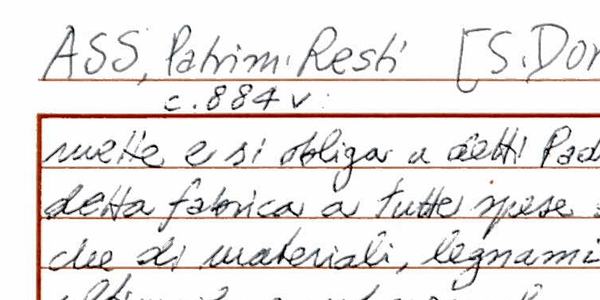 ASS, Patrim. Resti [S. Dom
c. 884 v.
mette e si obliga a detti Pad
detta fabrica a tutte spese
che di materiali, legnami